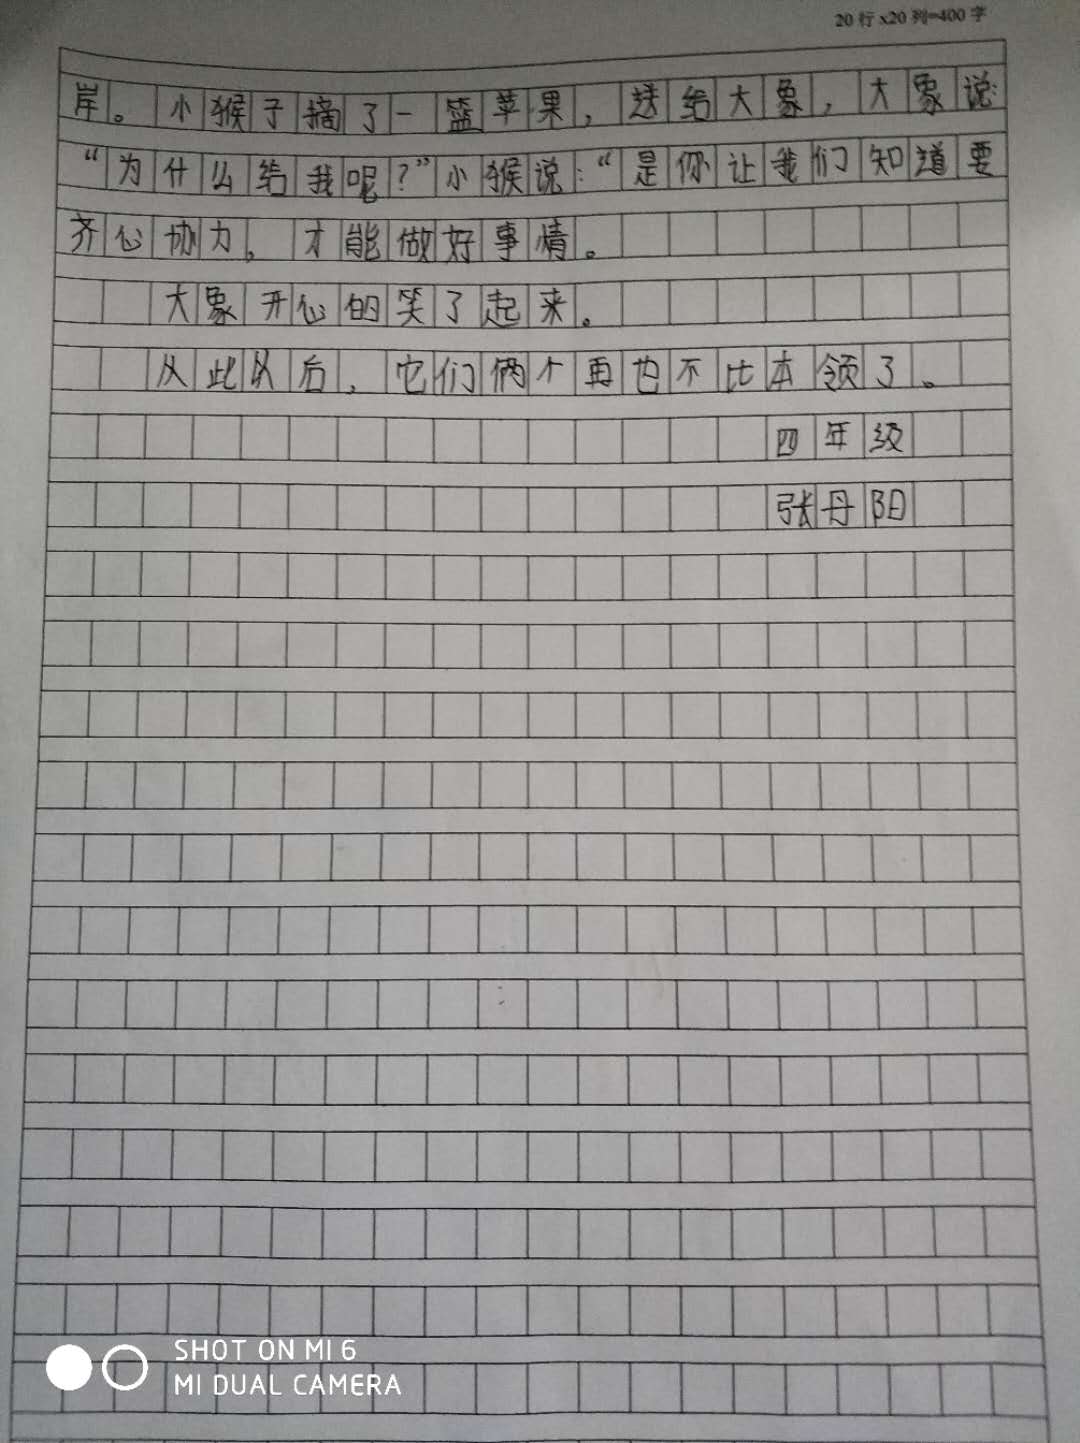 20行x20列=400字
岸。小猴子摘了一篮苹果，送给大象，大象说：
“为什么给我呢？”小猴说：“是你让我们知道要
齐心协力，才能做好事情。
大象开心的笑了起来。
从此以后，它们俩个再也不比本领了。
四年级
张丹阳
SHOT ON MI 6
MI DUAL CAMERA